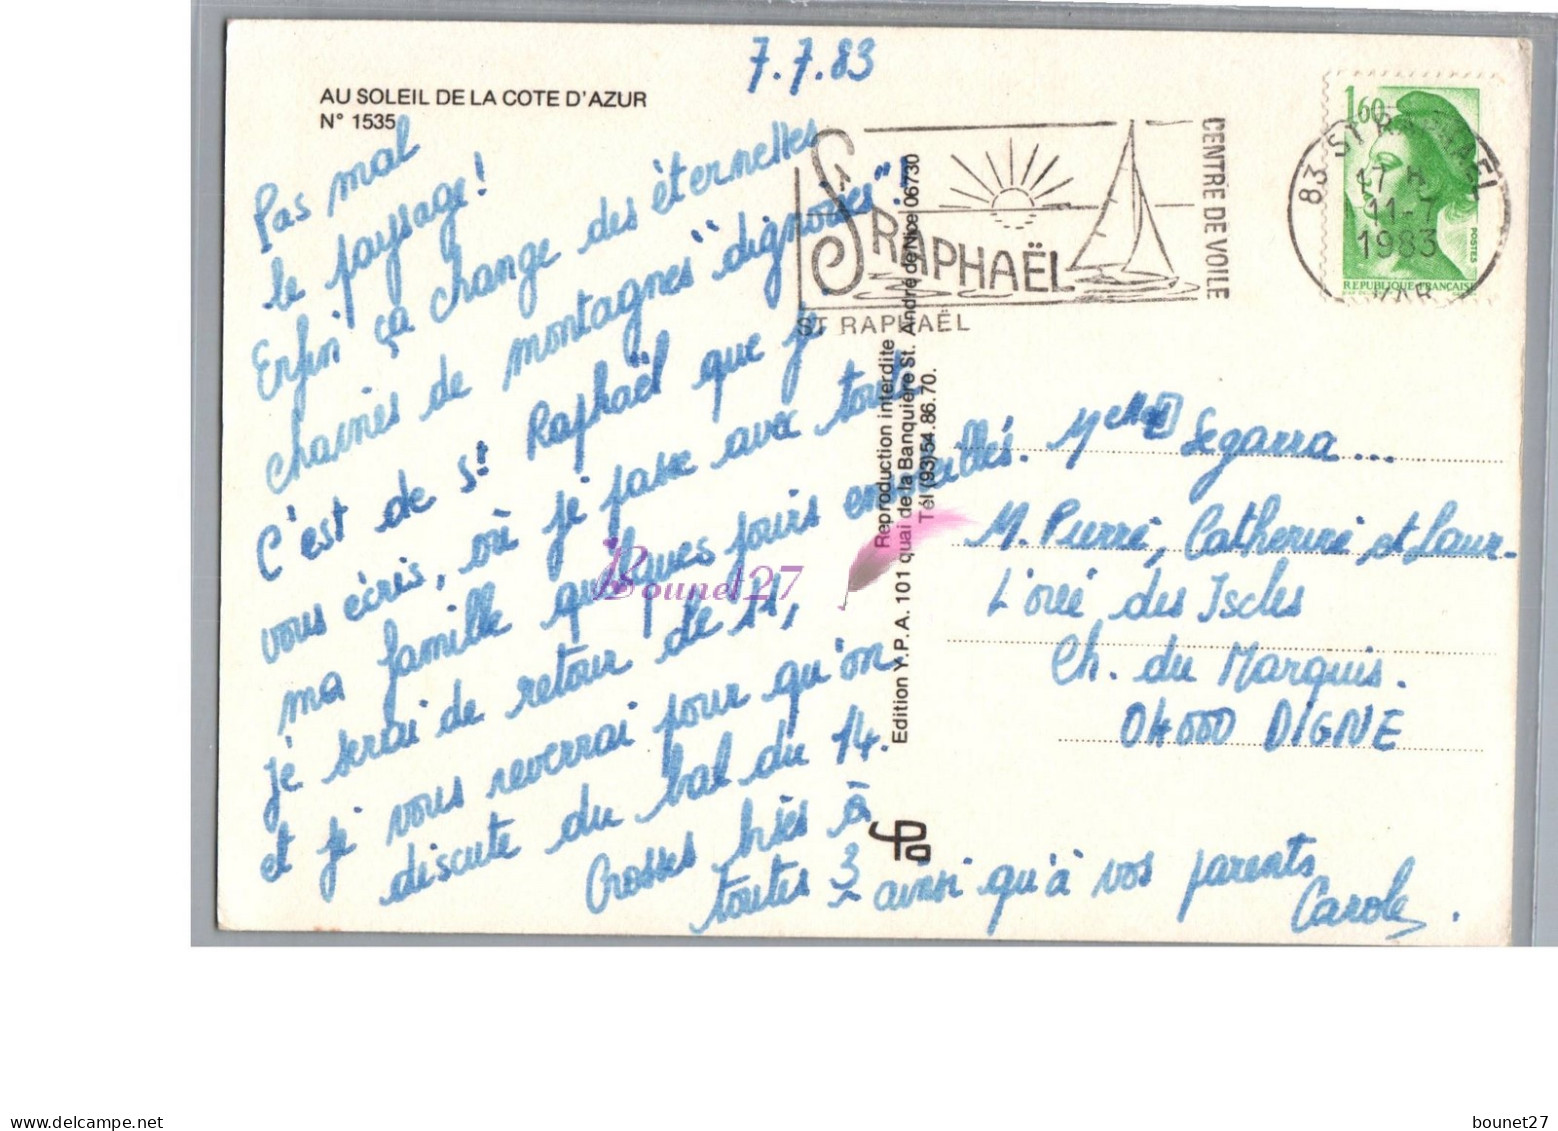 7.7.83
AU SOLEIL DE LA COTE D'AZUR
N° 1535
Pas mal
le paysage !
Enfin ça change des éternelles
chaines de montagnes "dignoises" !
C'est de St Raphaël que je
vous écris, où je passe avec toute
ma famille quelques jours ensoleillés.
je serai de retour le 11,
et je vous reverrai pour qu'on
discute du bal du 14.
Grosses bises à
toutes 3 ainsi qu'à vos parents
Carole.
ST RAPHAËL
CENTRE DE VOILE
ST RAPHAËL
1,60
POSTES
REPUBLIQUE FRANCAISE
83 ST RAPHAEL
17 H
11-7
1983
VAR
Reproduction interdite
Edition Y.P.A. 101 quai de la Banquière St. André de Nice 06730
Tél (93) 54.86.70.
Melles Segarra...
M. Pierre, Catherine et Laur-
L'orée des Iscles
Ch. du Marquis.
04000 DIGNE
Bounet27
www.delcampe.net
bounet27